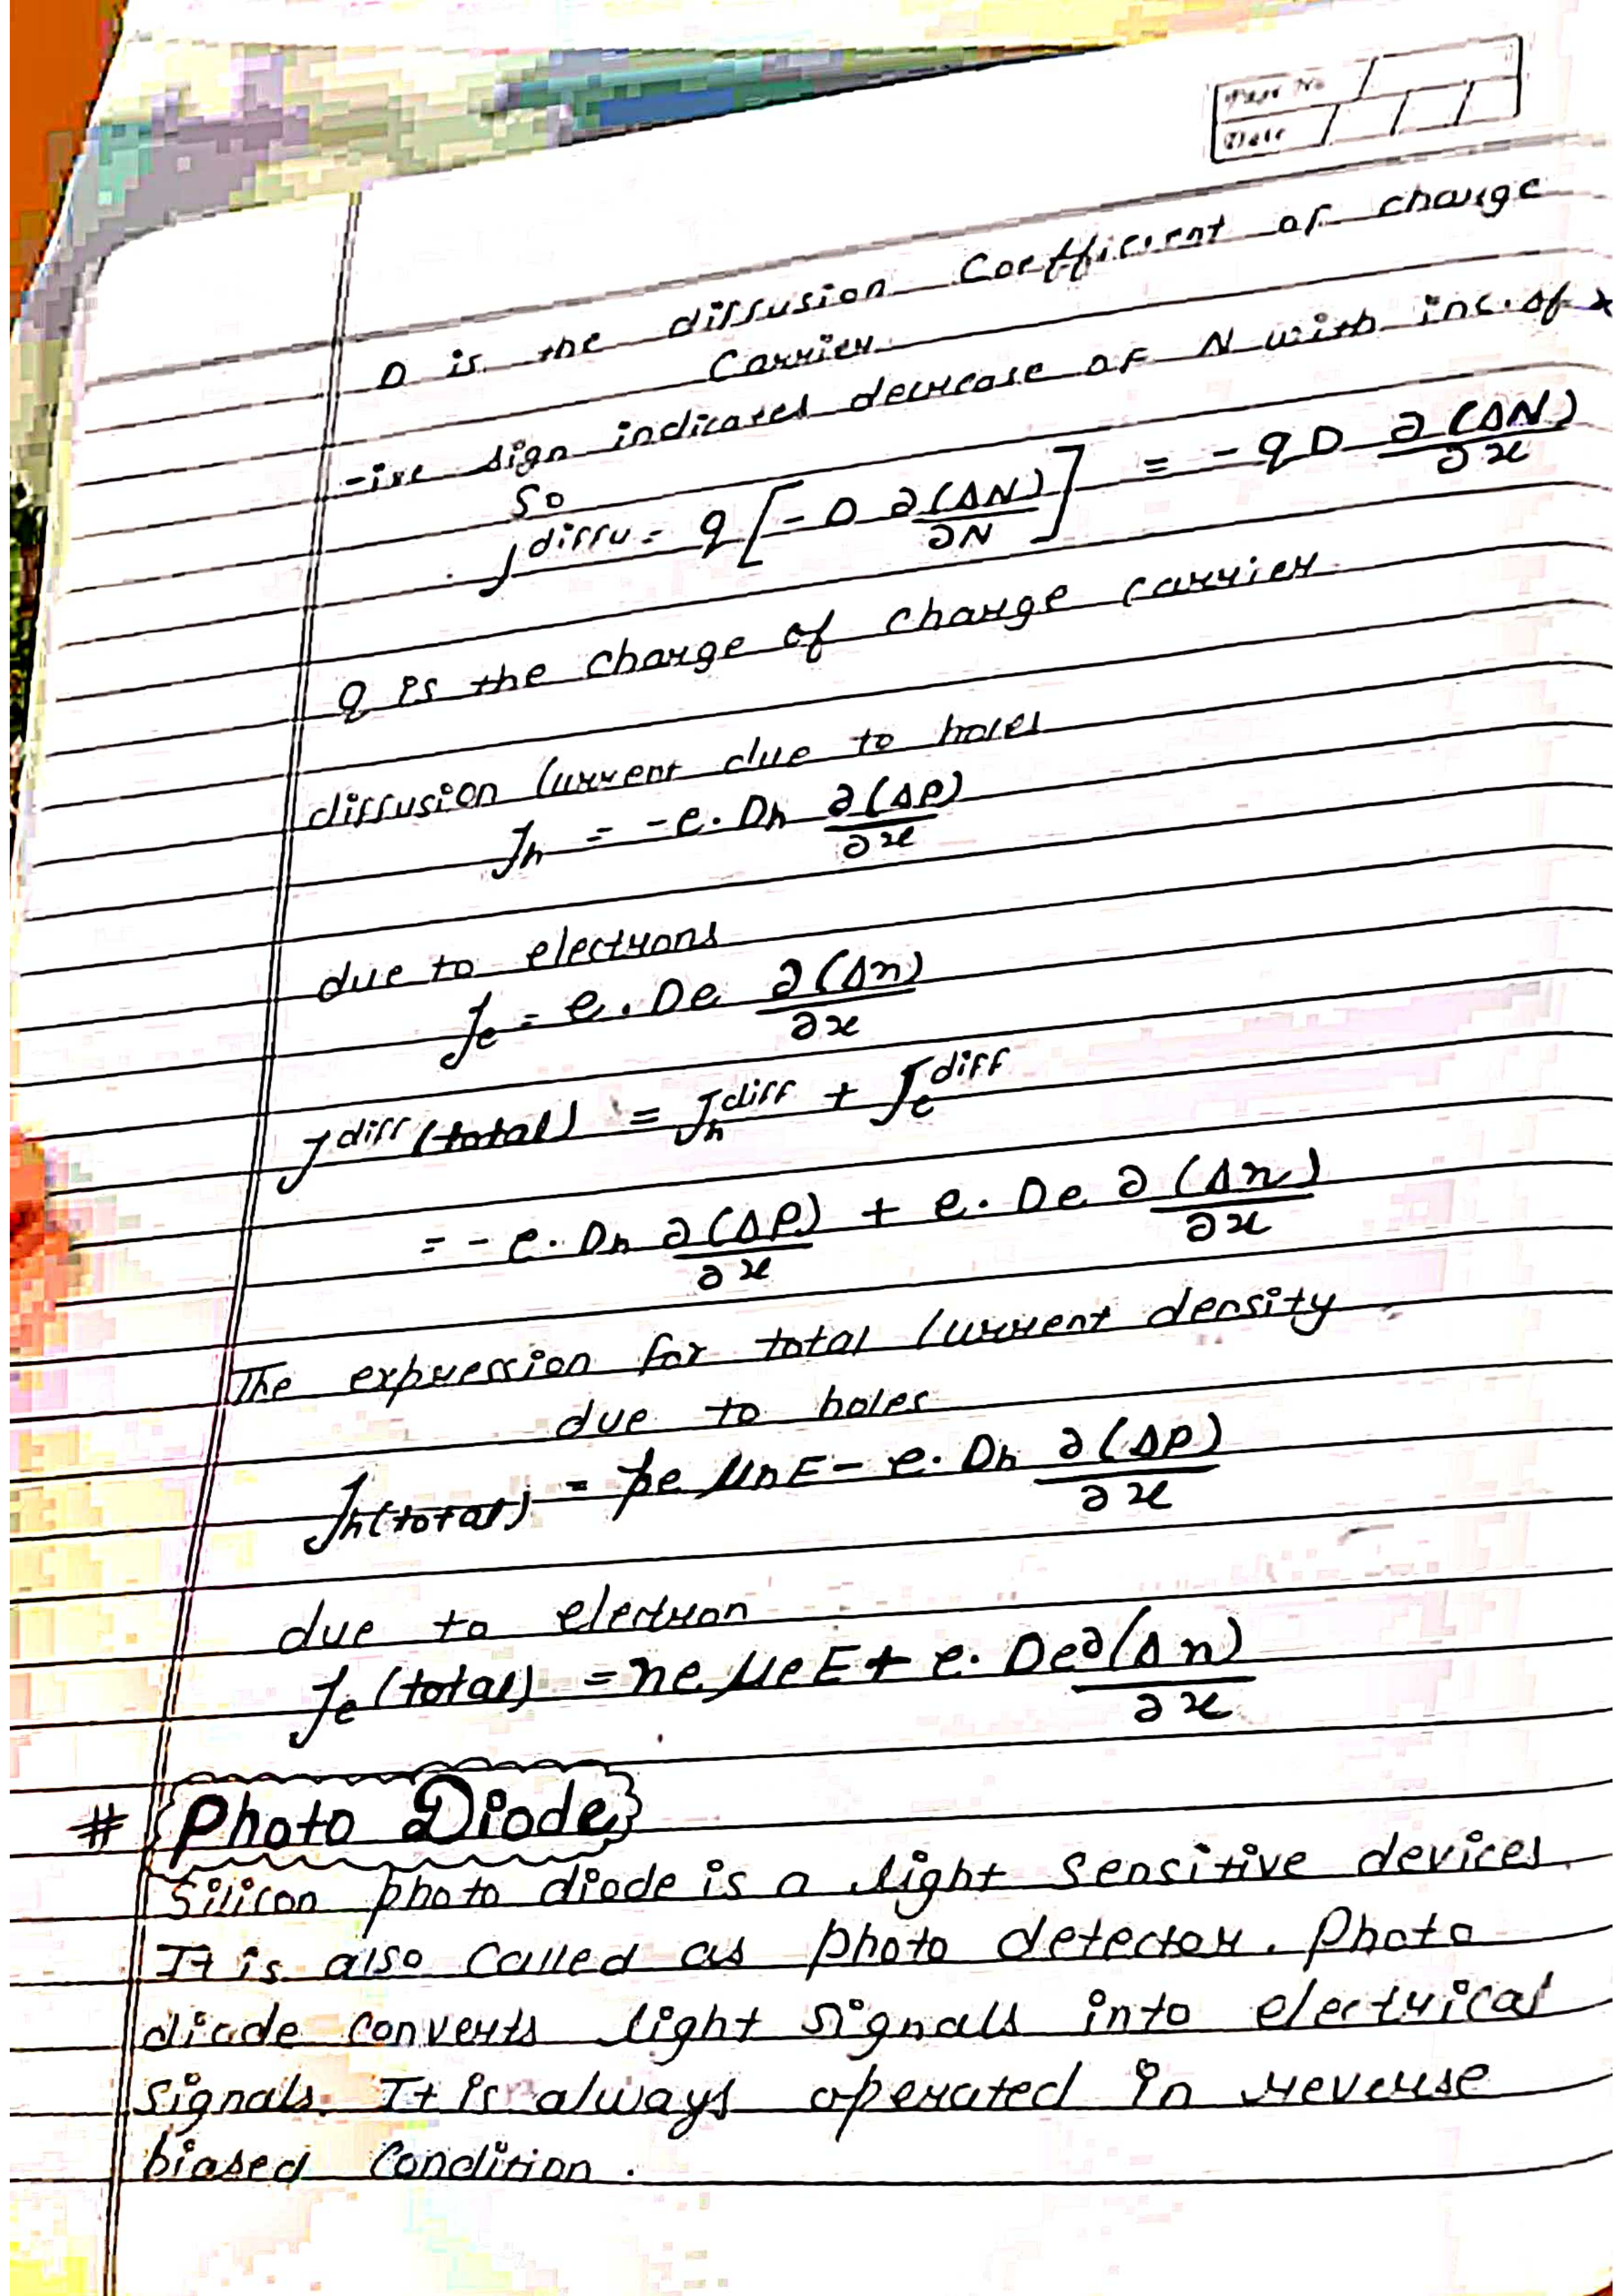 Page No
Date
D is the diffusion Coefficient of charge
Carrier
-ive sign indicates decrease of N with inc. of x
So
J^diffu = q [-D ∂(ΔN)/∂N] = -qD ∂(ΔN)/∂x
q is the charge of charge carrier
diffusion Current due to holes
Jh = -e. Dh ∂(ΔP)/∂x
due to electrons
Je = e. De ∂(Δn)/∂x
J^diff (total) = Jh^diff + Je^diff
= -e. Dh ∂(ΔP)/∂x + e. De ∂(Δn)/∂x
The expression for total Current density
due to holes
Jh(total) = pe μhE - e. Dh ∂(ΔP)/∂x
due to electron
Je (total) = ne μeE + e. De ∂(Δn)/∂x
# {Photo Diode}
Silicon photo diode is a light Sensitive devices.
It is also Called as photo detector. Photo
diode Converts light Signals into electrical
Signals. It is always operated in reverse
biased Condition.